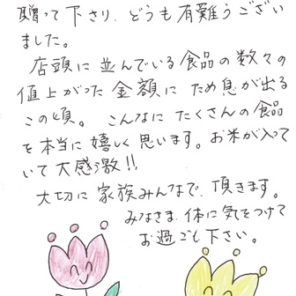 贈って下さり、どうも有難うござい
ました。
店頭に並んでいる食品の数々の
値上がった金額に ため息が出る
この頃。 こんなに たくさんの食品
を本当に嬉しく思います。お米が入って
いて大感激!!
大切に家族みんなで、頂きます。
みなさま、体に気をつけて
お過ごし下さい。